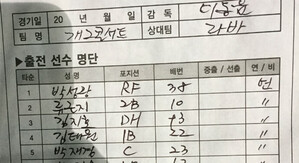 경기일 20 년 월 일 감독
팀 명 개그콘서트 상대팀 라바
▶출전 선수 명단
타순 성 명 포지션 배번 중출 / 선출 연 / 비
1 박성광 RF 38 연
2 류근지 2B 10 〃
3 김지호 DH 43 〃
4 김태원 1B 22 〃
5 C 23 〃